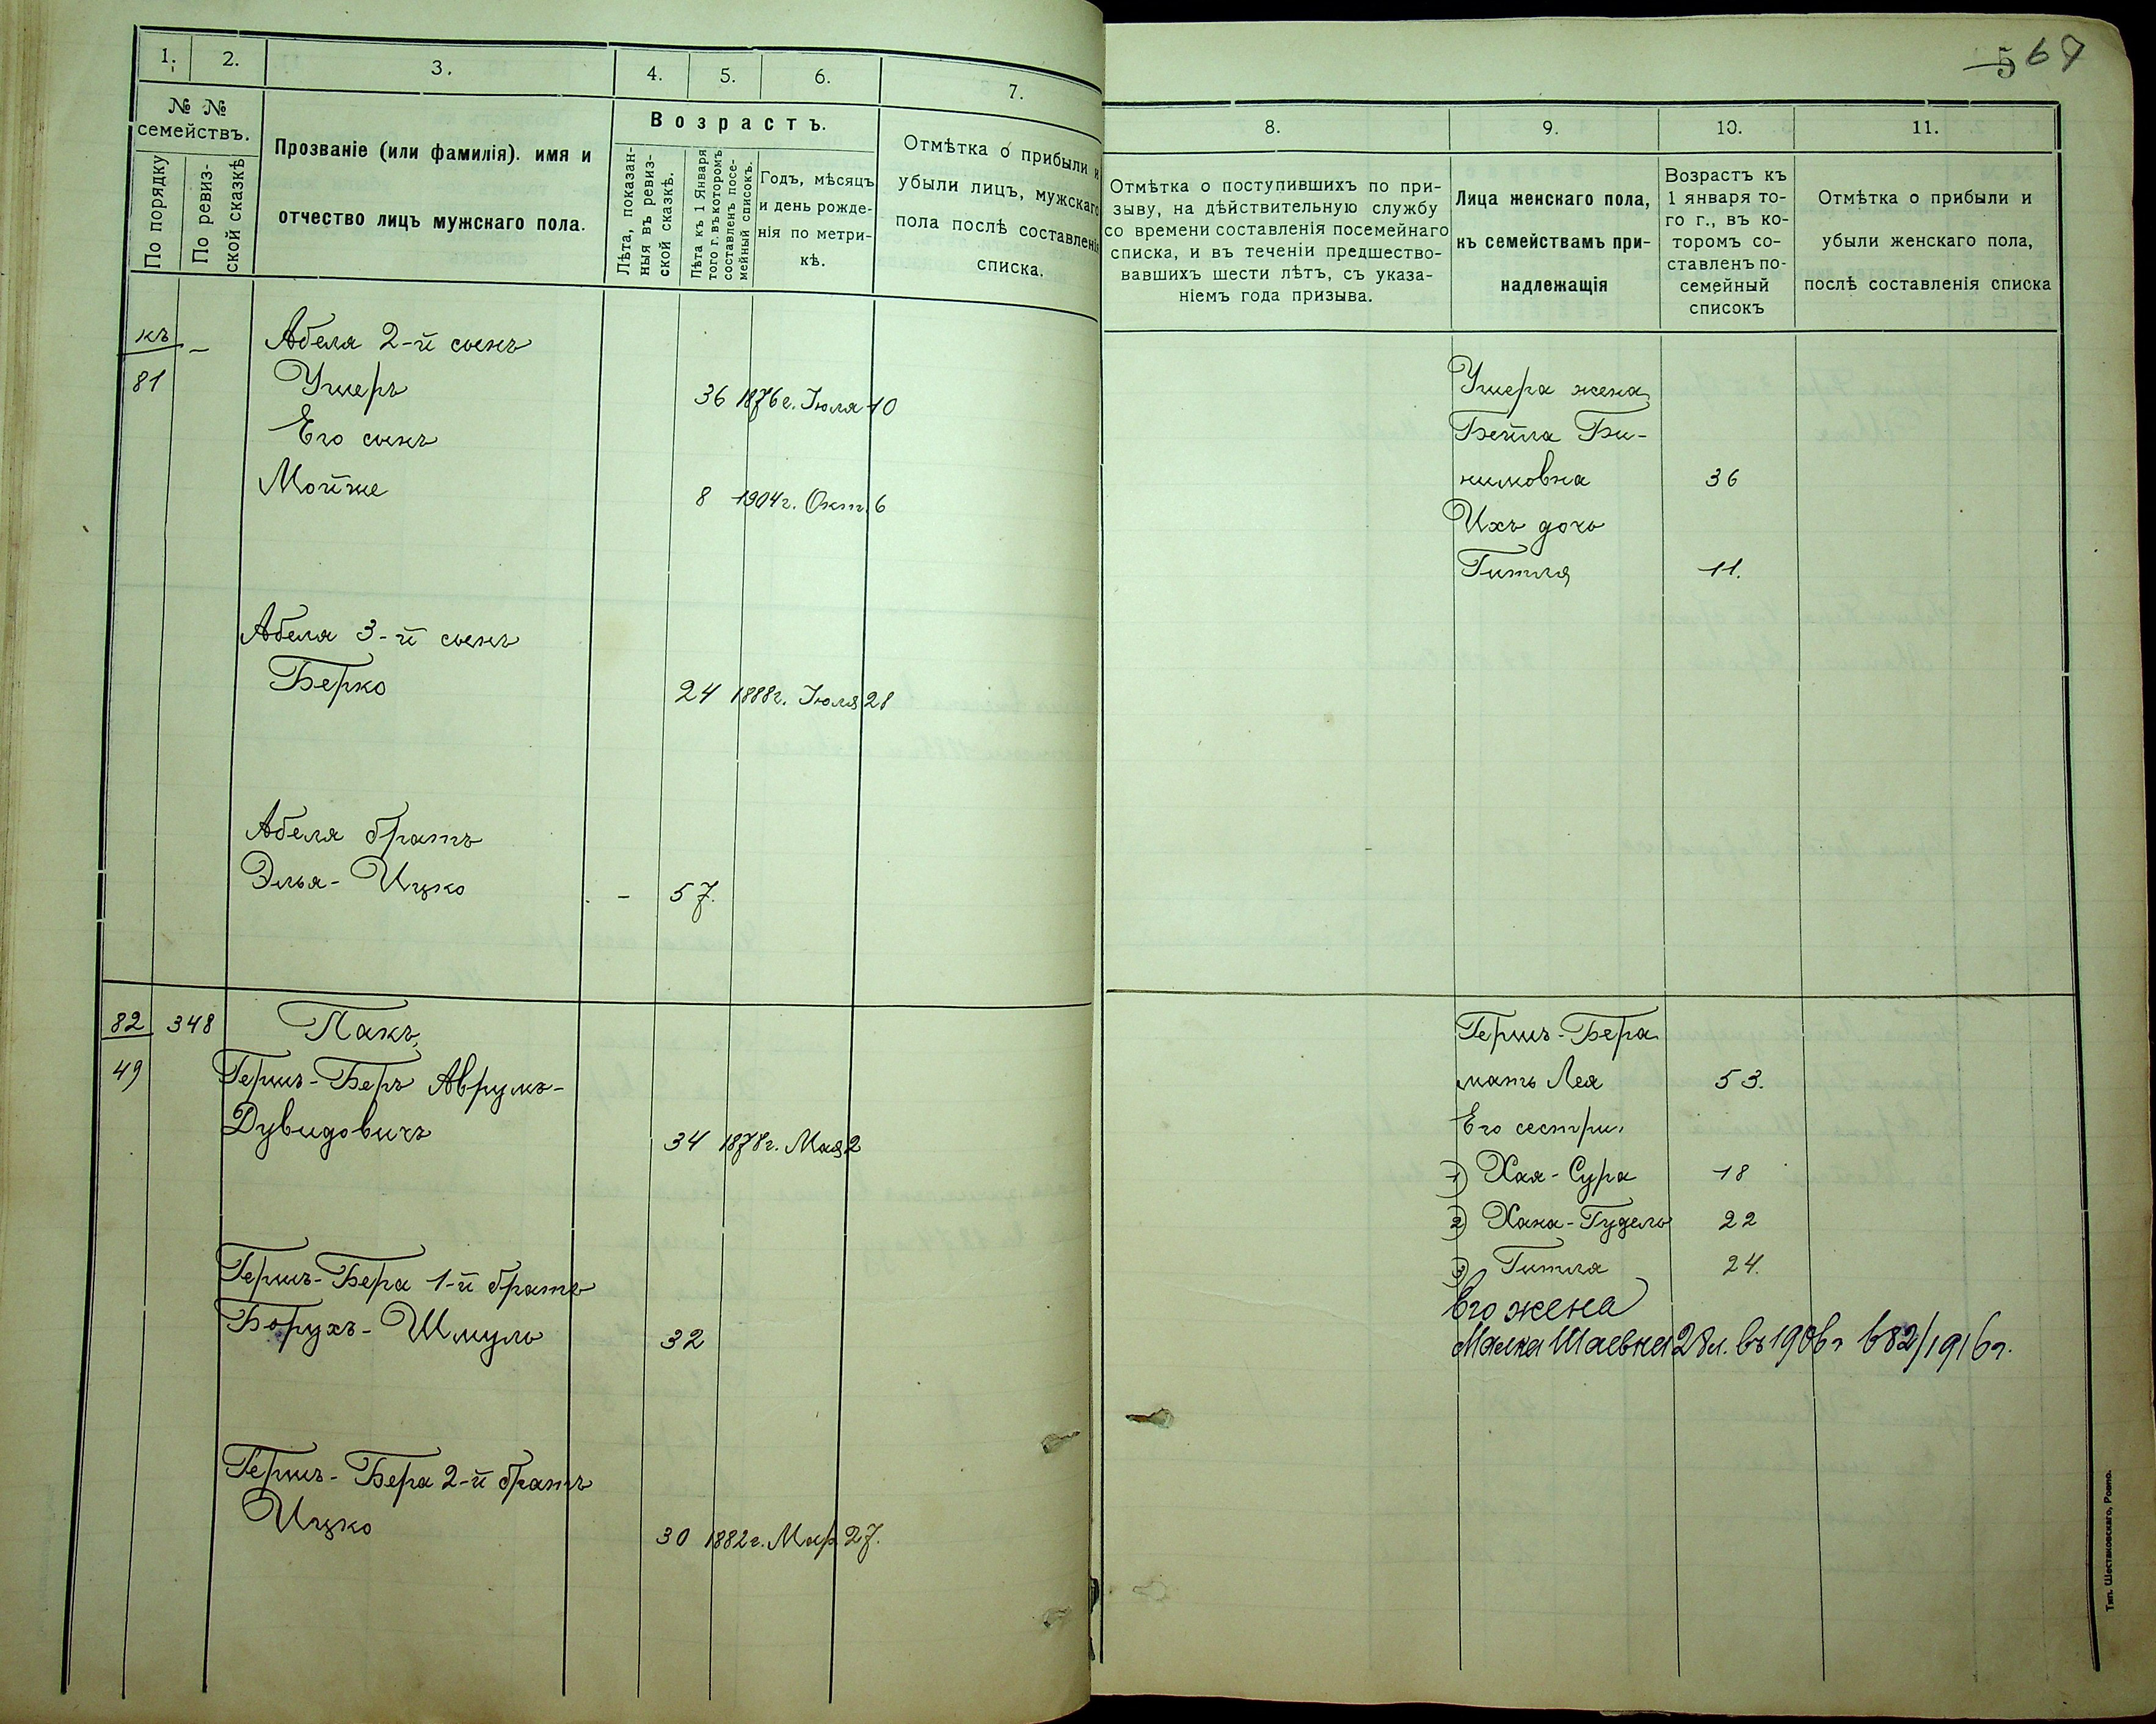 567
1. 2. 3. 4. 5. 6. 7.
№ № семействъ.
По порядку
По ревизской сказкѣ
Прозваніе (или фамилія). имя и
отчество лицъ мужскаго пола.
Возрастъ.
Лѣта, показан-
ныя въ ревиз-
ской сказкѣ.
Лѣта къ 1 Января
того г. въ которомъ
составленъ посе-
мейный списокъ.
Годъ, мѣсяцъ
и день рожде-
нія по метри-
кѣ.
Отмѣтка о прибыли и
убыли лицъ, мужскаго
пола послѣ составленія
списка.
къ
81 –
Абеля 2-й сынъ
Ушеръ 36 1876г. Іюля 10
Его сынъ
Мойше 8 1904г. Окт. 6
Абеля 3-й сынъ
Берко 24 1888г. Іюля 28
Абеля братъ
Элья-Ицко – 57.
82 348 Пакъ,
49 Гершъ-Беръ Аврумъ-
Дувидовичъ 34 1878г. Мая 2
Гершъ-Бера 1-й братъ
Борухъ-Шмуль 32
Гершъ-Бера 2-й братъ
Ицко 30 1882г. Мар. 27.
8. 9. 10. 11.
Отмѣтка о поступившихъ по при-
зыву, на дѣйствительную службу
со времени составленія посемейнаго
списка, и въ теченіи предшество-
вавшихъ шести лѣтъ, съ указа-
ніемъ года призыва.
Лица женскаго пола,
къ семействамъ при-
надлежащія
Возрастъ къ
1 января то-
го г., въ ко-
торомъ со-
ставленъ по-
семейный
списокъ
Отмѣтка о прибыли и
убыли женскаго пола,
послѣ составленія списка
Ушера жена
Бейла Би-
нимовна 36
Ихъ дочь
Гитля 11.
Гершъ-Бера
мать Лея 53.
Его сестры:
1) Хая-Сура 18
2) Хана-Гудель 22
3) Гитля 24.
Его жена
Малка Шаевна 28 л. въ 1906 г 682/1916 г.
Тип. Шестаковскаго, Ровно.